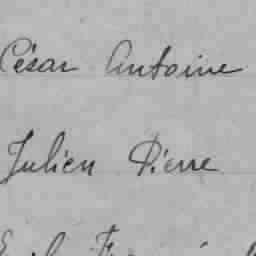 César Antoine
Julien Pierre